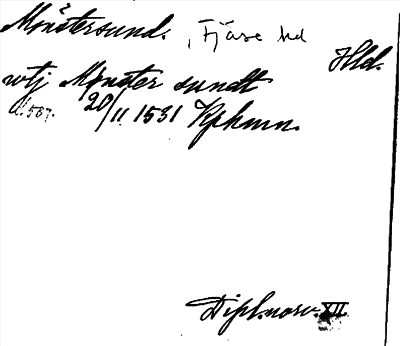 Mönstersund. , Fjäre hd
Hld.
wtj Mönster sundt
d. 587. 20/11 1531 Kphmn.
Dipl. norv. XII.